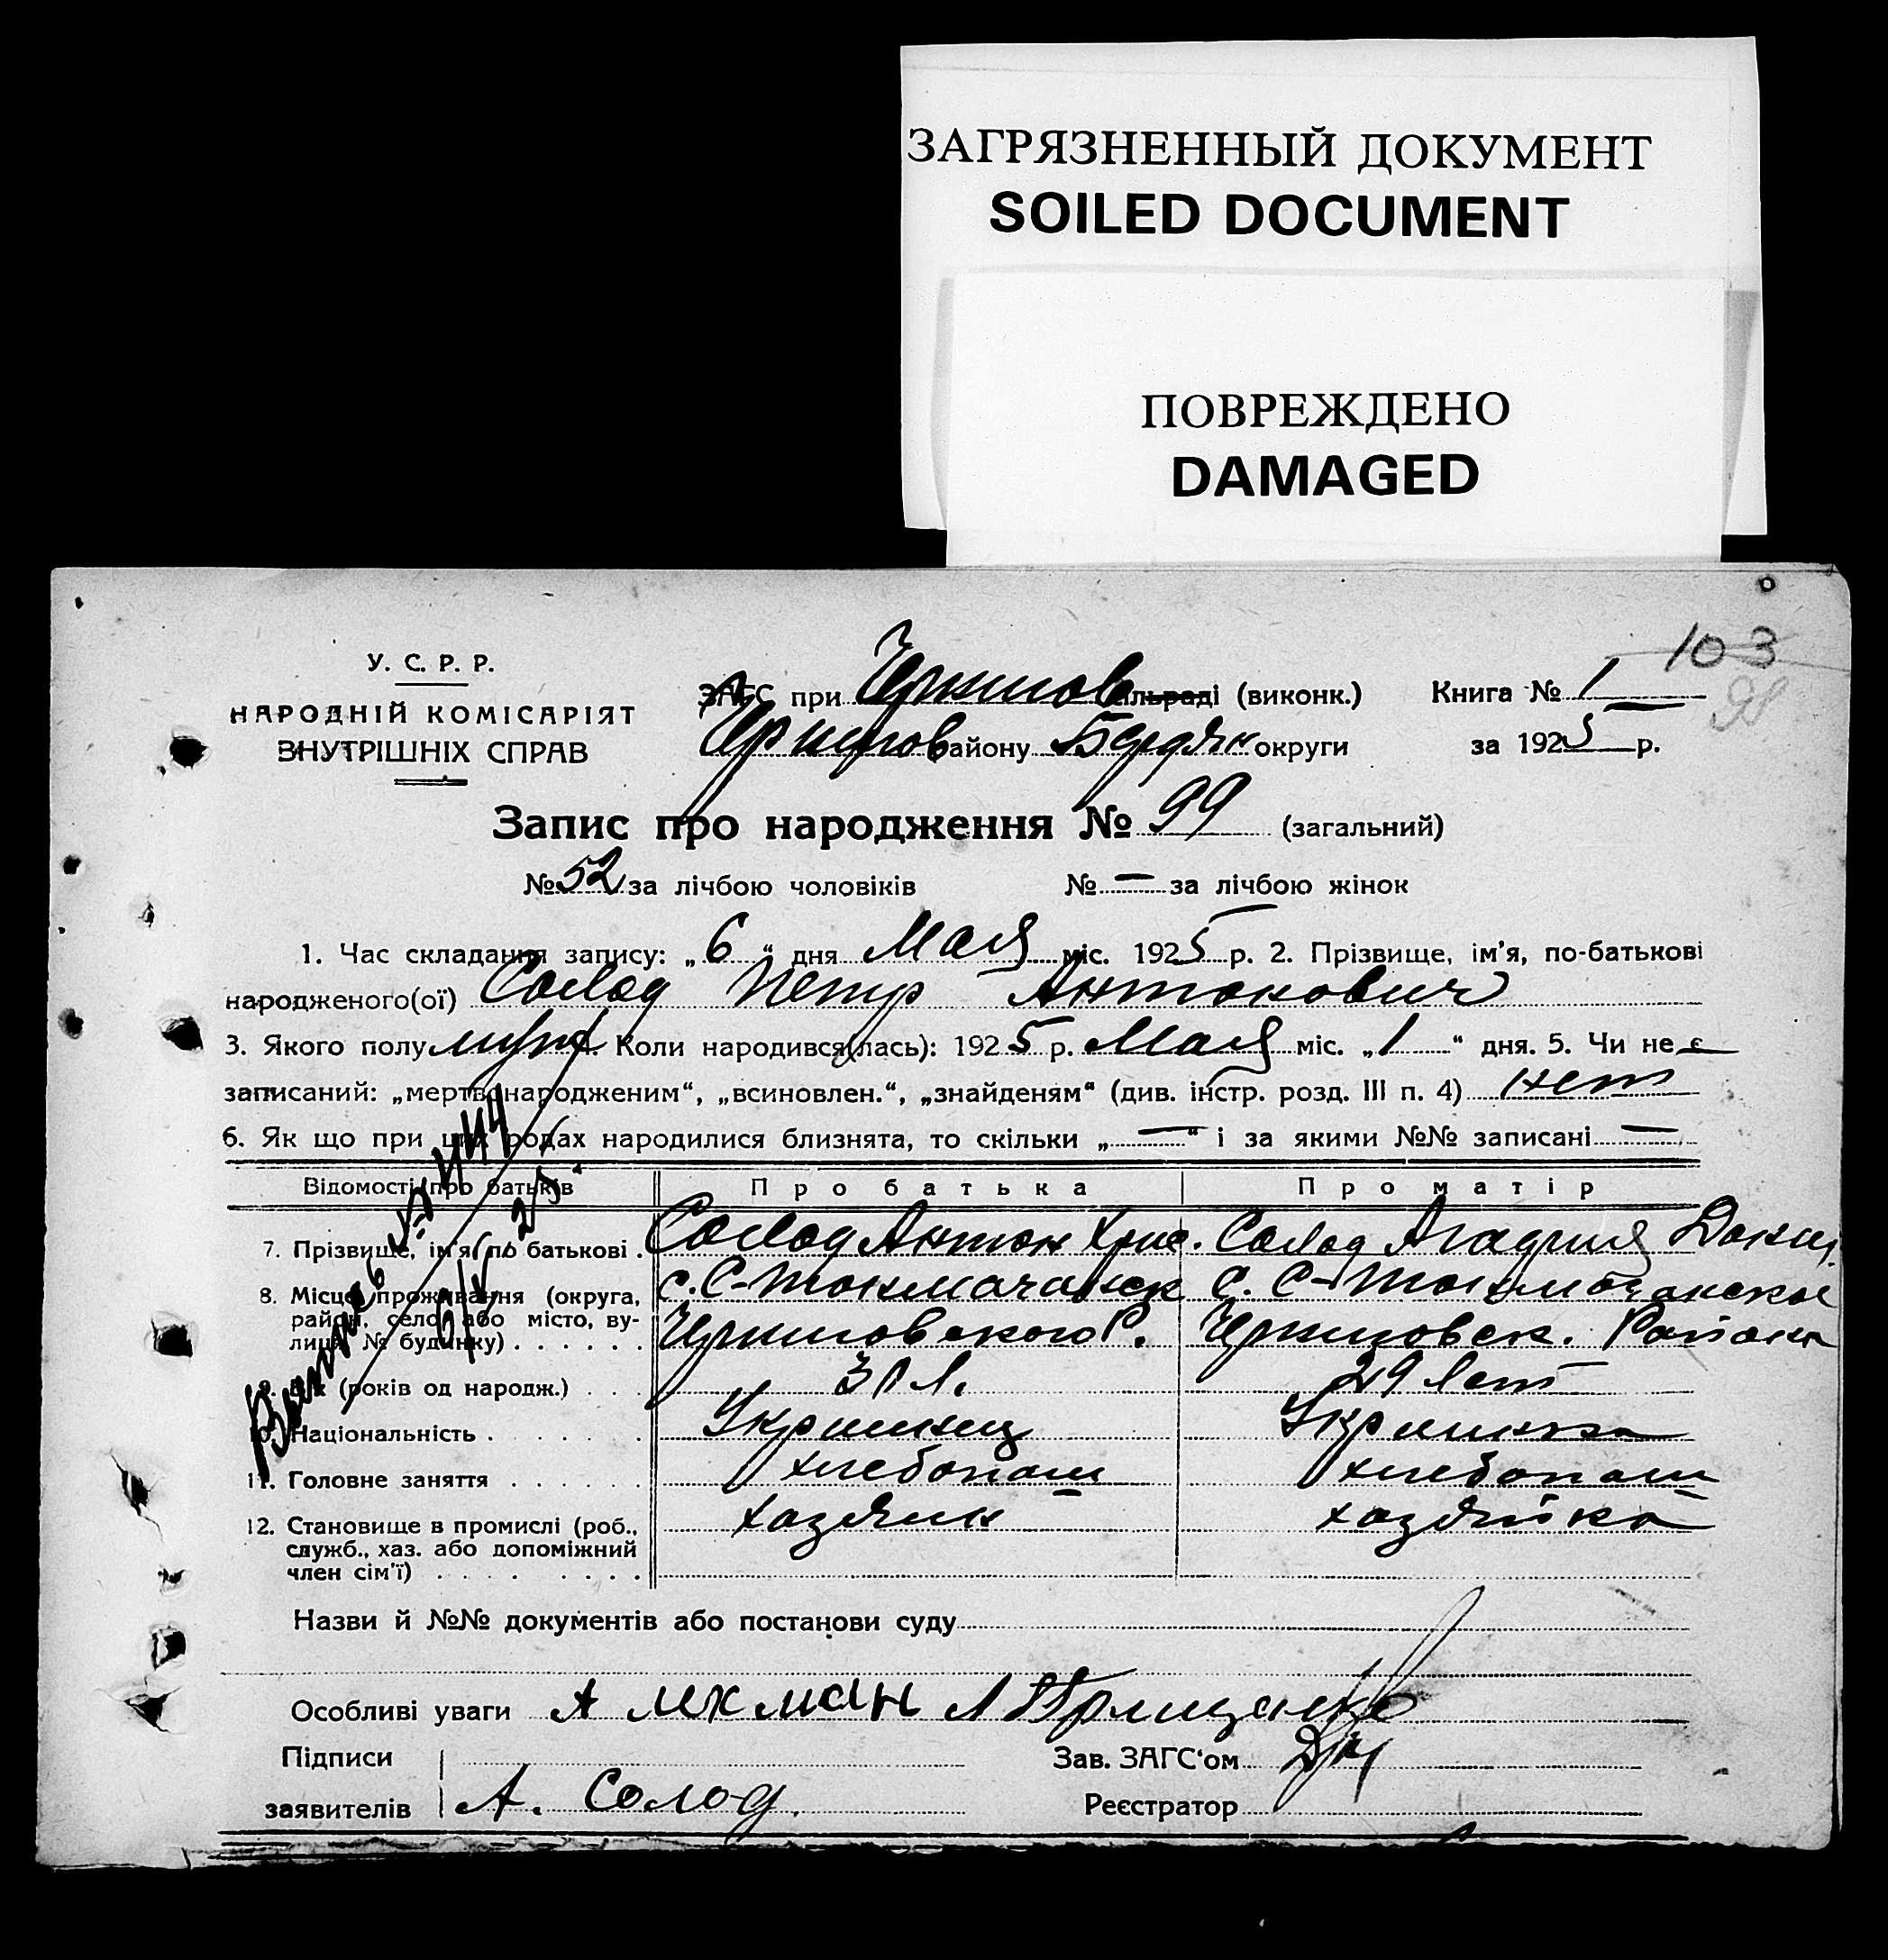 ЗАГРЯЗНЕННЫЙ ДОКУМЕНТ
SOILED DOCUMENT
ПОВРЕЖДЕНО
DAMAGED
103
98
У. С. Р. Р.
НАРОДНІЙ КОМІСАРІЯТ
ВНУТРІШНІХ СПРАВ
ЗАГС при Чернигов сільраді (виконк.) Книга № 1
Чернигов району Бердян округи за 1925 р.
Запис про народження № 99 (загальний)
№ 52 за лічбою чоловіків № — за лічбою жінок
1. Час складання запису: „6“ дня Мая міс. 1925 р. 2. Прізвище, ім'я, по-батькові
народженого(ої) Солод Петр Антонович
3. Якого полу муж 4. Коли народився(лась): 1925 р. Мая міс. „1“ дня. 5. Чи не є
записаний: „мертвонародженим“, „всиновлен.“, „знайденям“ (див. інстр. розд. III п. 4) нет
6. Як що при цих родах народилися близнята, то скільки „—“ і за якими №№ записані —
Відомості про батьків Про батька Про матір
7. Прізвище, ім'я, по батькові . Солод Антон Солод Агафия
8. Місце проживання (округа, район, село або місто, вулиця, № будинку) . . . . . . с. С-Токмачанск с. С-Токмачанское
Черниговского Р. Черниговск. Района
9. Вік (років од народж.) . . . 30 л. 29 лет
10. Національність . . . . . . Украинец Украинка
11. Головне заняття . . . . . . хлебопаш хлебопаш
12. Становище в промислі (роб., служб., хаз. або допоміжний член сім'ї) . . . . . . . . хазяин хазяйка
Назви й №№ документів або постанови суду
Особливі уваги
Підписи Зав. ЗАГС'ом
заявителів А. Солод. Реєстратор